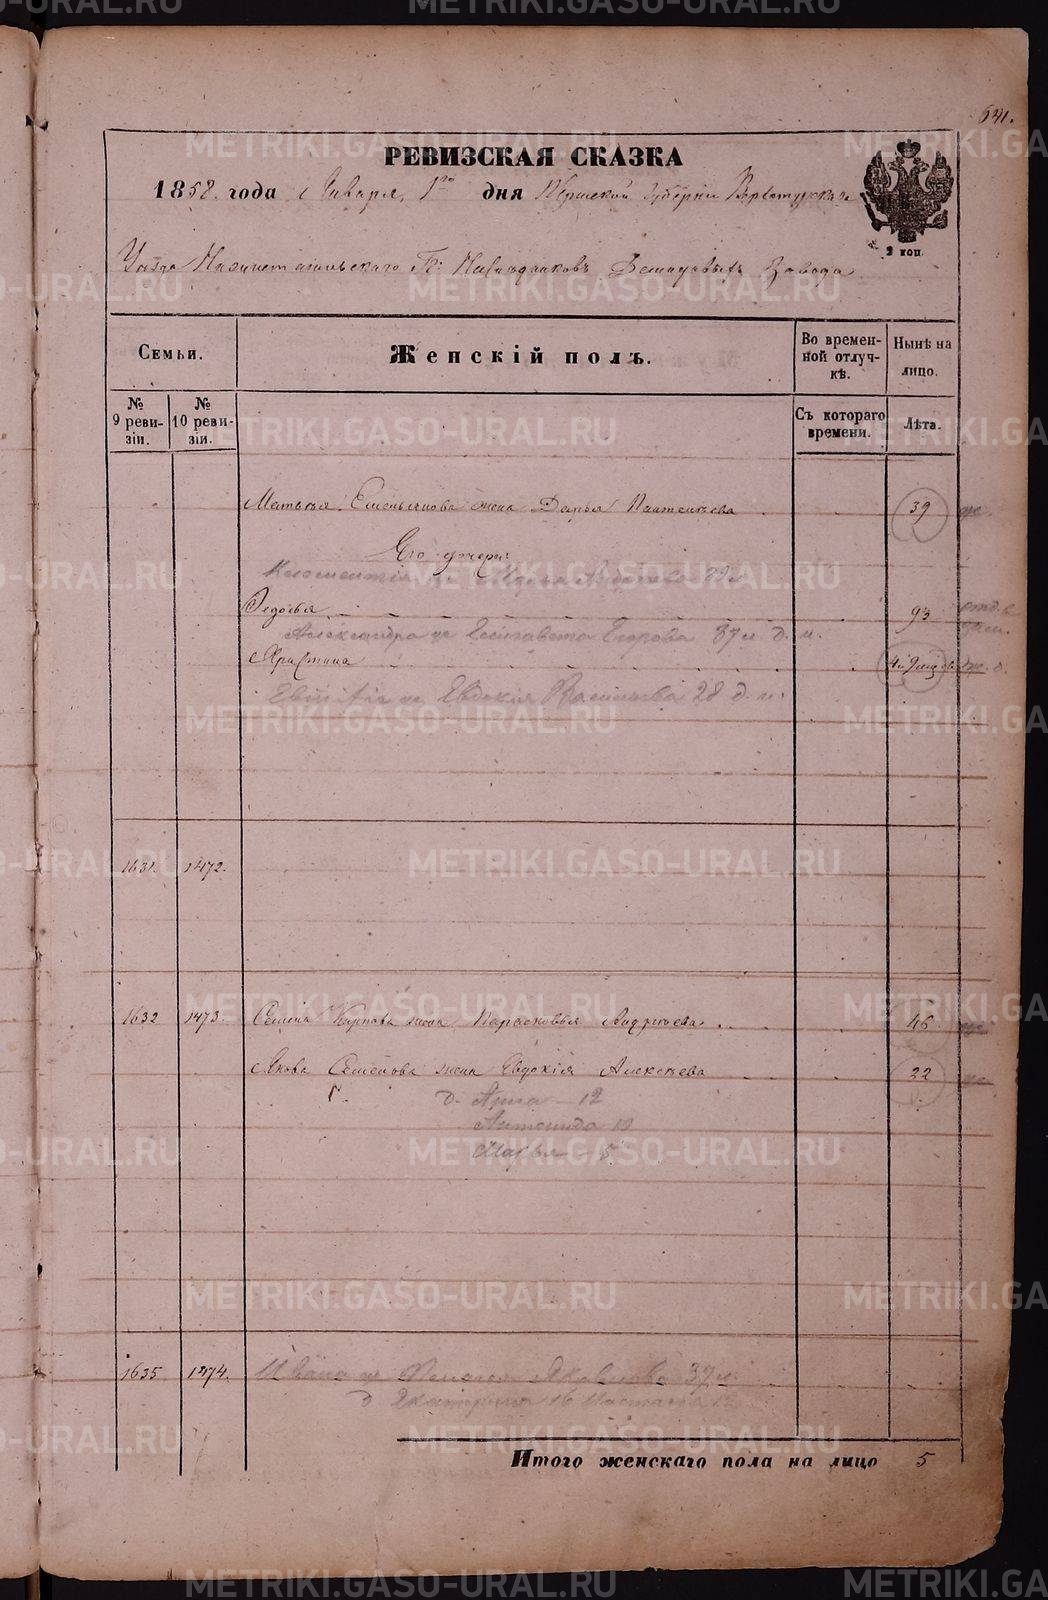 641.
РЕВИЗСКАЯ СКАЗКА
1858. года Января, 1го дня Пермской Губерніи Верхотурскаго
2 коп.
Уѣзда Нижнетагильскаго Гг: Наслѣдниковъ Демидовыхъ Завода
Семьи.
Женскій полъ.
Во времен-
ной отлуч-
кѣ.
Нынѣ на
лицо.
№
9 реви-
зіи.
№
10 реви-
зіи.
Съ котораго
времени.
Лѣта.
Матвѣя Емельянова жена Дарья Пантелѣева 39
Его дочери:
Марья
Федосья
Александра Елизавета Егорова 37 л.
Христина
Евдокія Васильева 28
1631. 1472.
1632 1473. Семена Карпова жена Парасковья Андреева 46
Якова Семенова жена Евдокія Алексѣева 22
д. Анна – 12
Антонида 10
Марья – 5
1635 1474. Ивана Пелагея Яковлева 37 л.
д Екатерина 16 Настасья 12
Итого женскаго пола на лицо 5
METRIKI.GASO-URAL.RU